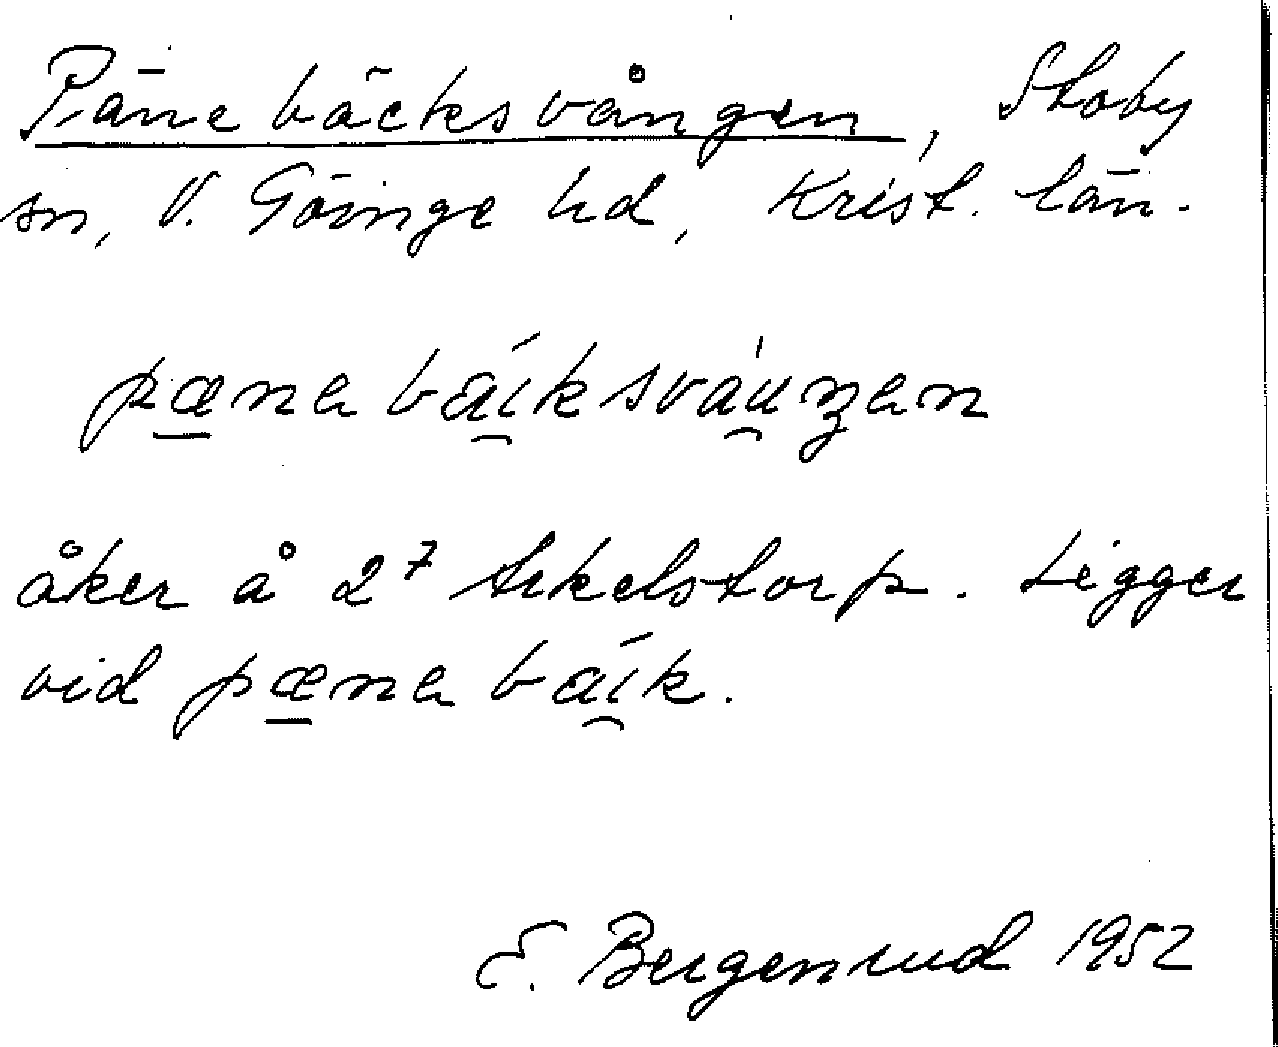 Pänebäcksvången, Stoby
sn, V. Göinge hd, Krist. län.
pæna báiksváuŋan
åker å 2⁷ Ankelstorp. Ligger
vid pæna báik.
E. Bergenrud 1952